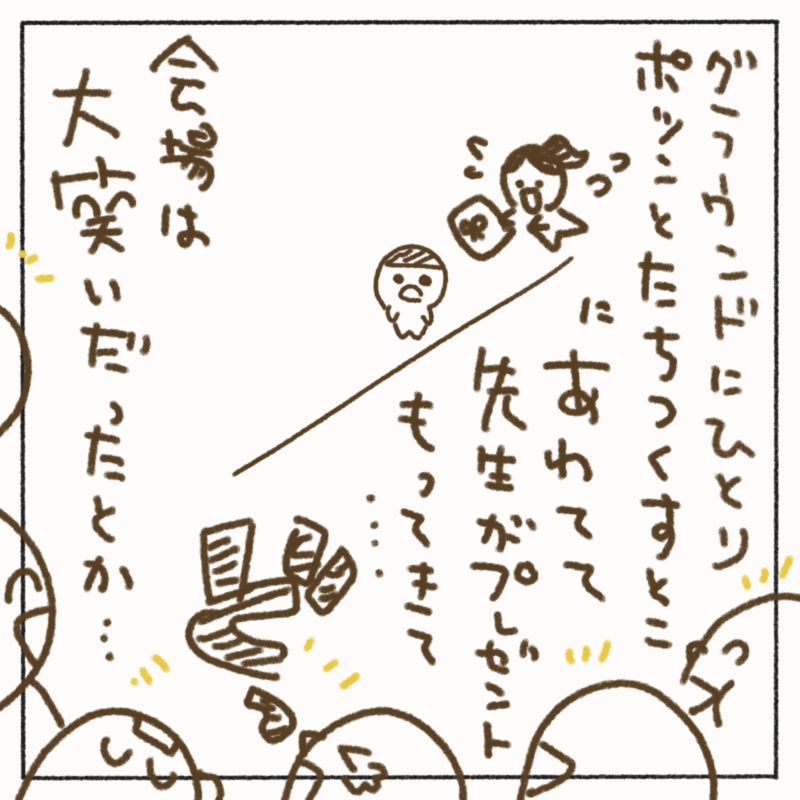 グラウンドにひとり
ポツンとたちつくすとこ
に
あわてて
先生がプレゼント
もってきて
…
祝
会場は
大笑いだったとか…